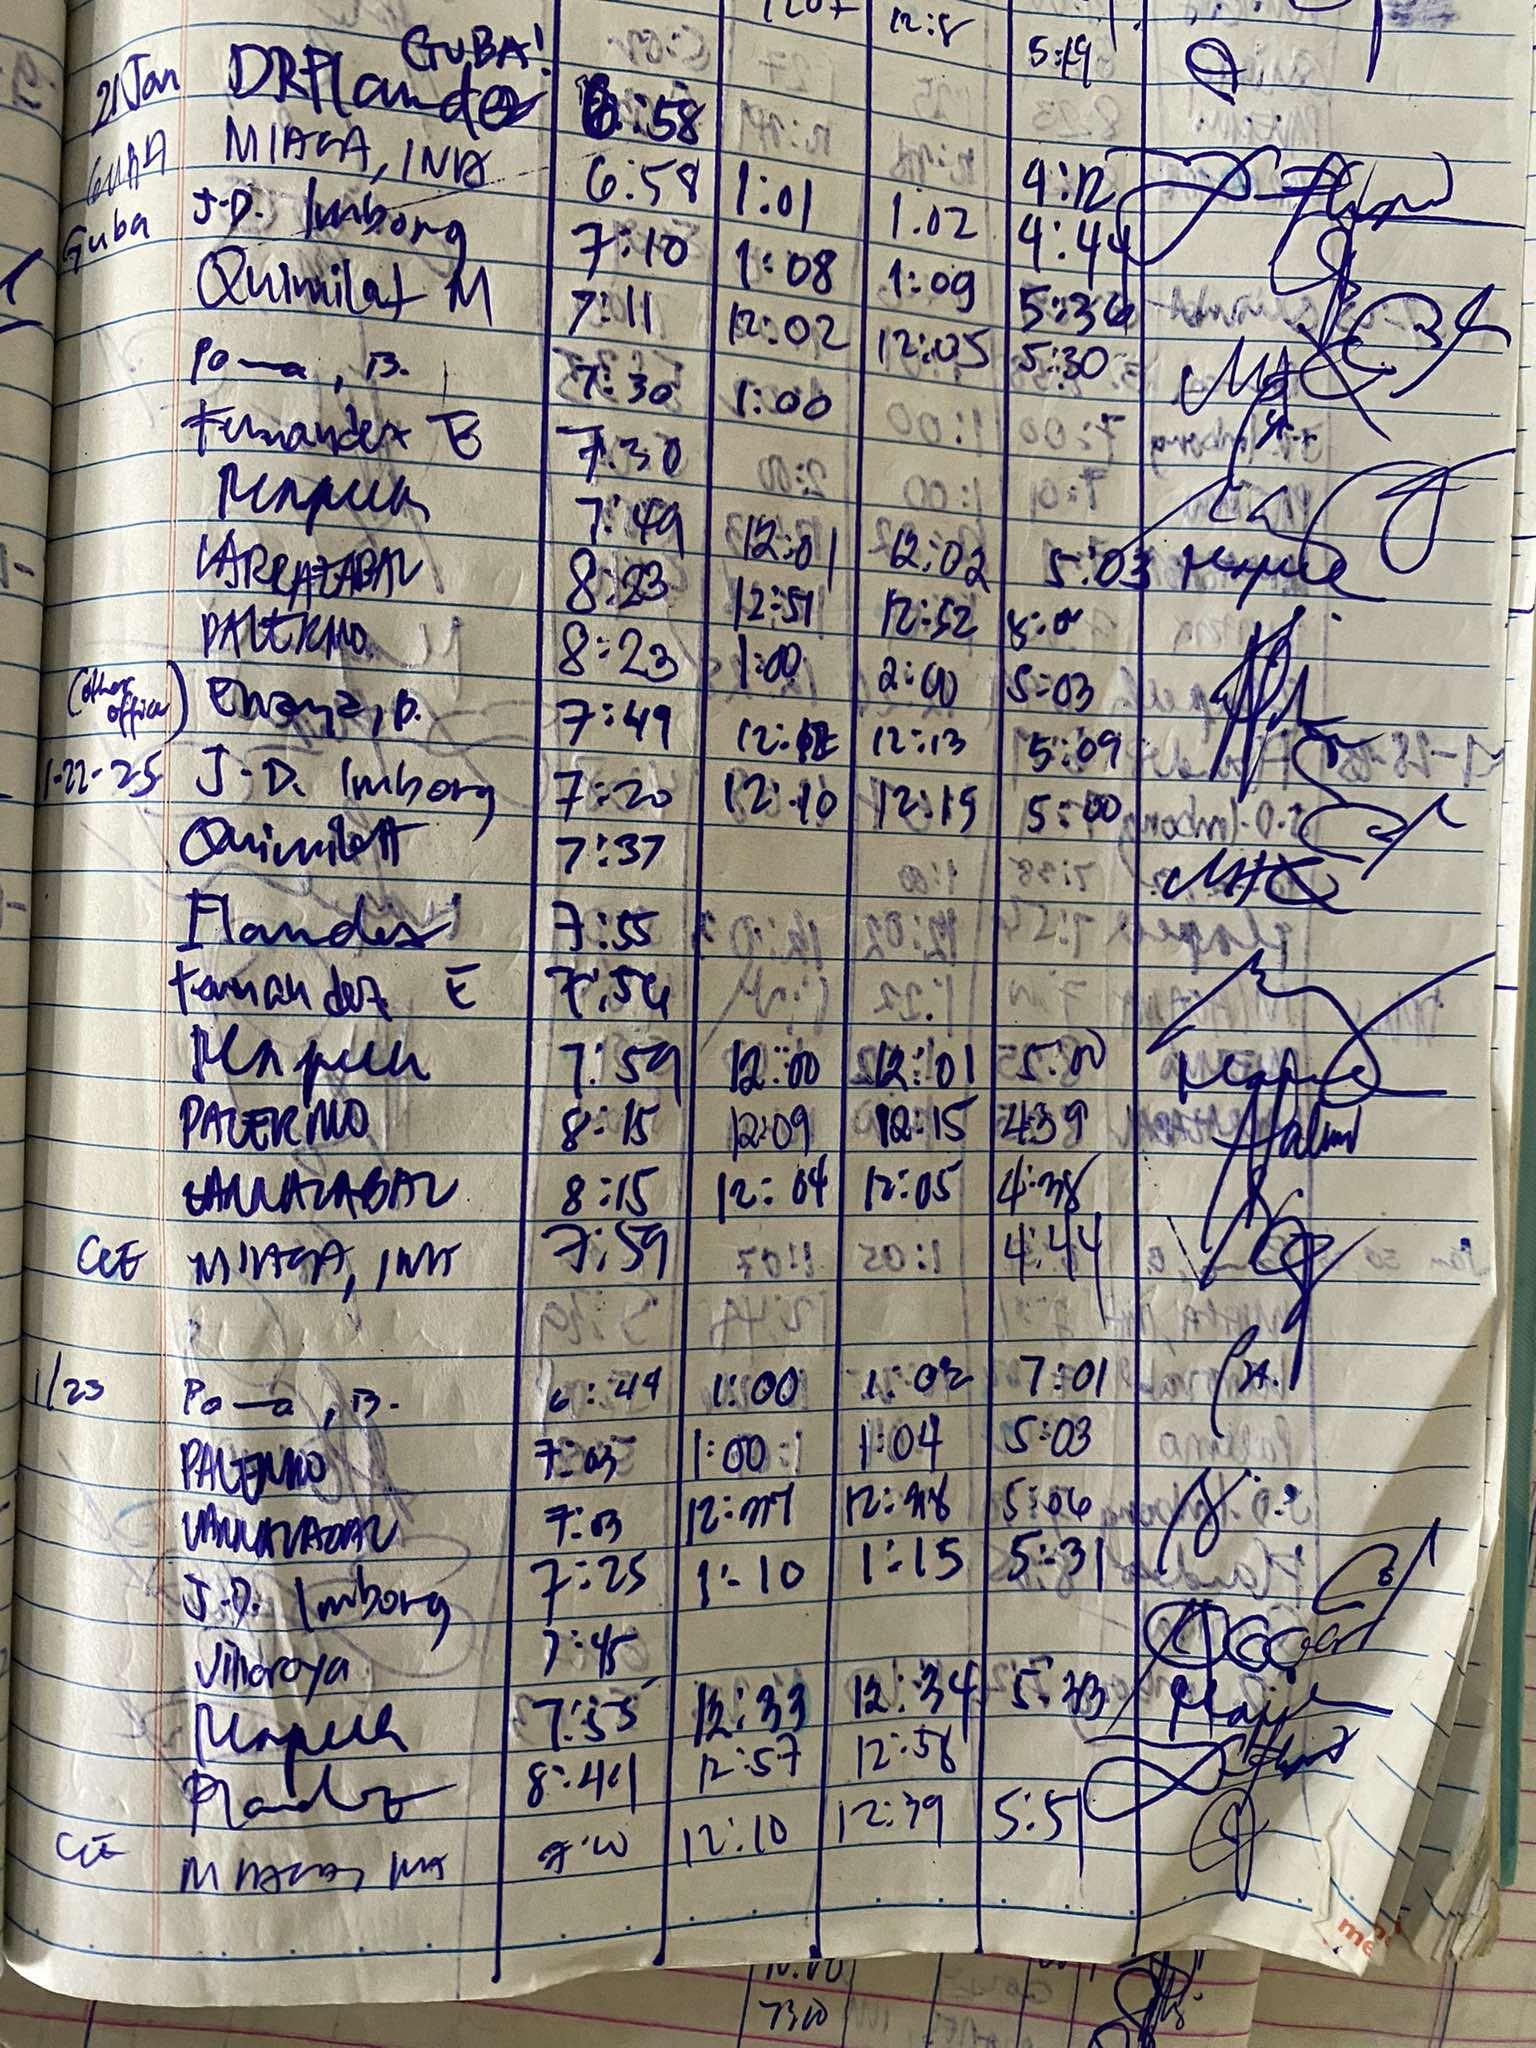 12:8 5:19
GUBA!
21 Jan DRFlandez 6:58 4:12
GUBA MIAGA, INA 6:58 1:01 1.02 4:44
Guba J.D. Imborg 7:10 1:08 1:09 5:36
Quimilat M 7:11 12:02 12:05 5:30
Po—a, B. 7:30 1:00
Fernandez E 7:30
7:49 12:01 12:02 5:03
LARRAZABAL 8:23 12:51 12:52
PALERMO 8:23 1:00 2:00 5:03
(other office) 7:49 12:12 12:13 5:09
1-22-25 J.D. Imborg 7:20 12:10 12:19 5:00
Quimilat 7:37
Flandez 7:55
Fernandez E 7:54
7:59 12:00 12:01 5:00
PALERMO 8:15 12:09 12:15 4:39
LARRAZABAL 8:15 12:04 12:05 4:38
CCE MIAGA, INA 7:59 4:44
1/23 Po—a, B. 6:44 1:00 1:02 7:01
PALERMO 7:03 1:00 1:04 5:03
LARRAZABAL 7:03 12:37 12:38 5:06
J.D. Imborg 7:25 1:10 1:15 5:31
Villaroya 7:45
7:55 12:33 12:34 5:33
Flandez 8:41 12:57 12:58
CCE MIAGA, INA 12:10 12:39 5:51
7300